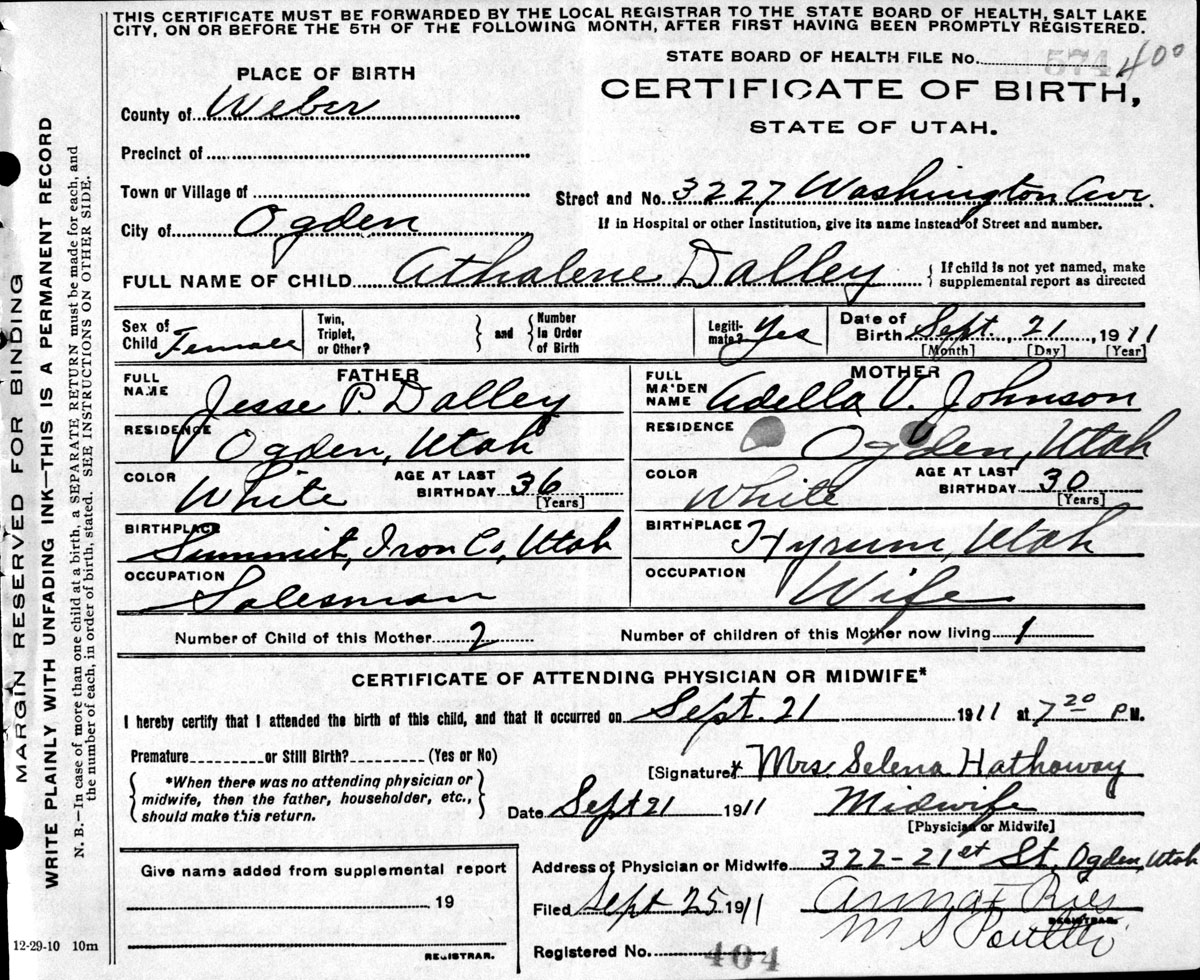 THIS CERTIFICATE MUST BE FORWARDED BY THE LOCAL REGISTRAR TO THE STATE BOARD OF HEALTH, SALT LAKE
CITY, ON OR BEFORE THE 5TH OF THE FOLLOWING MONTH, AFTER FIRST HAVING BEEN PROMPTLY REGISTERED.
STATE BOARD OF HEALTH FILE No. 574 400
PLACE OF BIRTH
CERTIFICATE OF BIRTH,
STATE OF UTAH.
County of Weber
Precinct of
Town or Village of
Street and No. 3227 Washington Ave.
City of Ogden
If in Hospital or other Institution, give its name instead of Street and number.
FULL NAME OF CHILD Athalene Dalley
If child is not yet named, make
supplemental report as directed
Sex of
Child Female
Twin,
Triplet,
or Other?
and
Number
in Order
of Birth
Legiti-
mate? Yes
Date of
Birth Sept. 21, 1911
[Month] [Day] [Year]
FATHER
FULL
NAME Jesse P. Dalley
RESIDENCE Ogden, Utah
COLOR White
AGE AT LAST
BIRTHDAY 36
[Years]
BIRTHPLACE
Summit, Iron Co, Utah
OCCUPATION
Salesman
MOTHER
FULL
MAIDEN
NAME Adella V. Johnson
RESIDENCE Ogden, Utah
COLOR White
AGE AT LAST
BIRTHDAY 30
[Years]
BIRTHPLACE Hyrum, Utah
OCCUPATION Wife
Number of Child of this Mother 2
Number of children of this Mother now living 1
CERTIFICATE OF ATTENDING PHYSICIAN OR MIDWIFE*
I hereby certify that I attended the birth of this child, and that it occurred on Sept. 21 1911 at 7 20 P M.
Premature or Still Birth? (Yes or No)
*When there was no attending physician or
midwife, then the father, householder, etc.,
should make this return.
[Signature* Mrs Selena Hathaway
Date Sept 21 1911 Midwife
[Physician or Midwife]
Give name added from supplemental report
19
REGISTRAR.
Address of Physician or Midwife 322-21st St. Ogden, Utah
Filed Sept 25 1911
REGISTRAR.
Registered No. 404
12-29-10 10m
MARGIN RESERVED FOR BINDING
WRITE PLAINLY WITH UNFADING INK—THIS IS A PERMANENT RECORD
N. B.—In case of more than one child at a birth, a SEPARATE RETURN must be made for each, and
the number of each, in order of birth, stated. SEE INSTRUCTIONS ON OTHER SIDE.